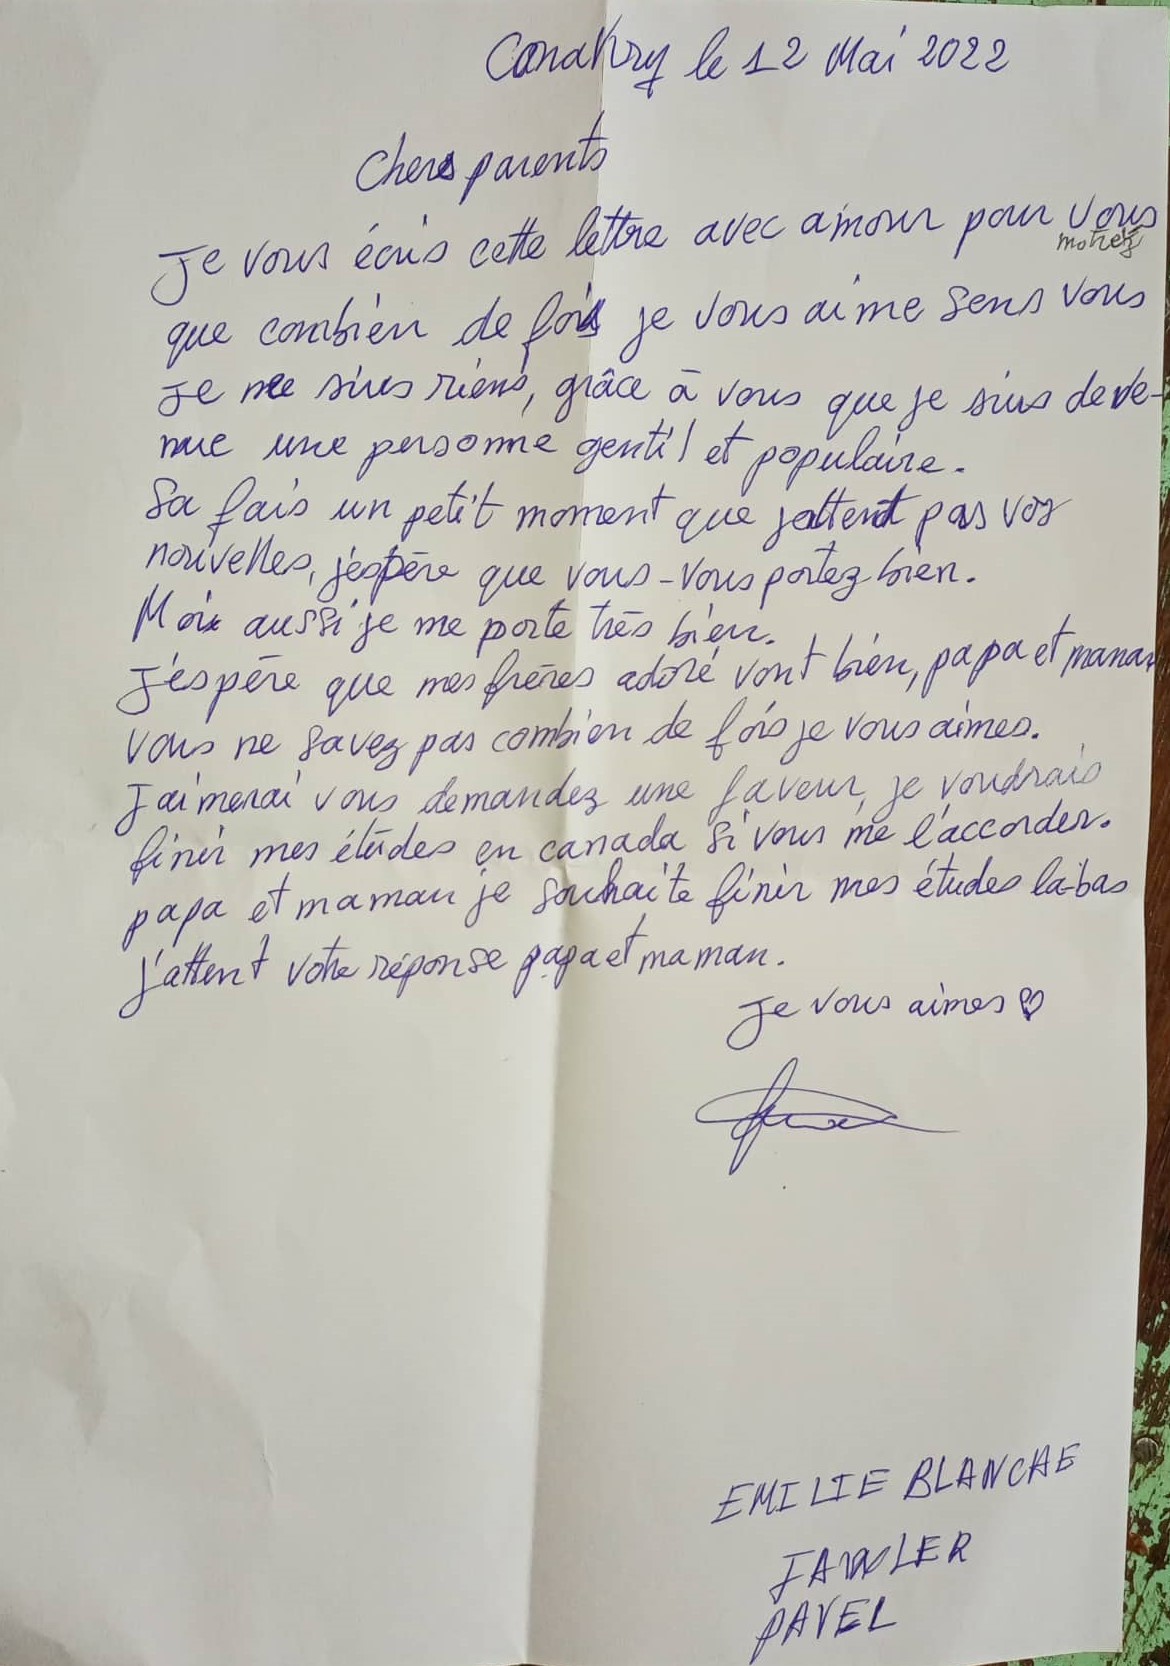 Conakry le 12 Mai 2022
Chers parents
Je vous écris cette lettre avec amour pour vous
motrez
que combien de fois je vous aime sens vous
je ne suis riens, grâce à vous que je suis deve-
nue une personne gentil et populaire.
Sa fais un petit moment que jattent pas vos
nouvelles, j'éspère que vous-vous portez bien.
Moi aussi je me porte très bien.
J'éspère que mes frères adoré vont bien, papa et maman
vous ne savez pas combien de fois je vous aimes.
J'aimerai vous demandez une faveur, je voudrais
finir mes études en canada si vous me l'accorder.
papa et maman je souhaite finir mes études la-bas
j'attent votre réponse papa et maman.
Je vous aimes ♡
EMILIE BLANCHE
PAVEL